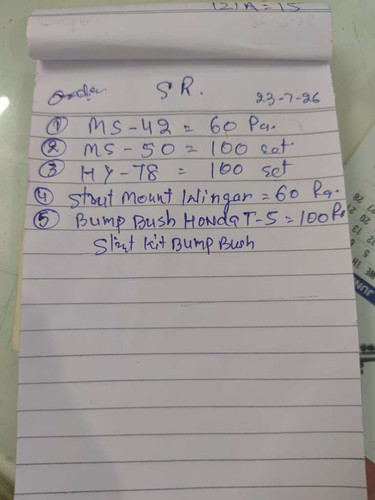 121A = 15
Order S R. 23-7-26
① MS-42 = 60 Pa.
② MS-50 = 100 set
③ HY-78 = 100 set
④ Strut Mount Wingar = 60 Pa.
⑤ Bump Bush HONDA T-5 = 100 Pa
Strut Kit Bump Bush
JUN